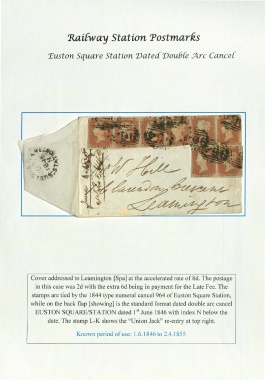 Railway Station Postmarks
Euston Square Station Dated Double Arc Cancel
W Hill
Clarendon Crescent
Leamington
Cover addressed to Leamington [Spa] at the accelerated rate of 8d. The postage
in this case was 2d with the extra 6d being in payment for the Late Fee. The
stamps are tied by the 1844 type numeral cancel 964 of Euston Square Station,
while on the back flap [showing] is the standard format dated double arc cancel
EUSTON SQUARE/STATION dated 1st June 1846 with index N below the
date. The stamp L-K shows the “Union Jack” re-entry at top right.
Known period of use: 1.6.1846 to 2.4.1855